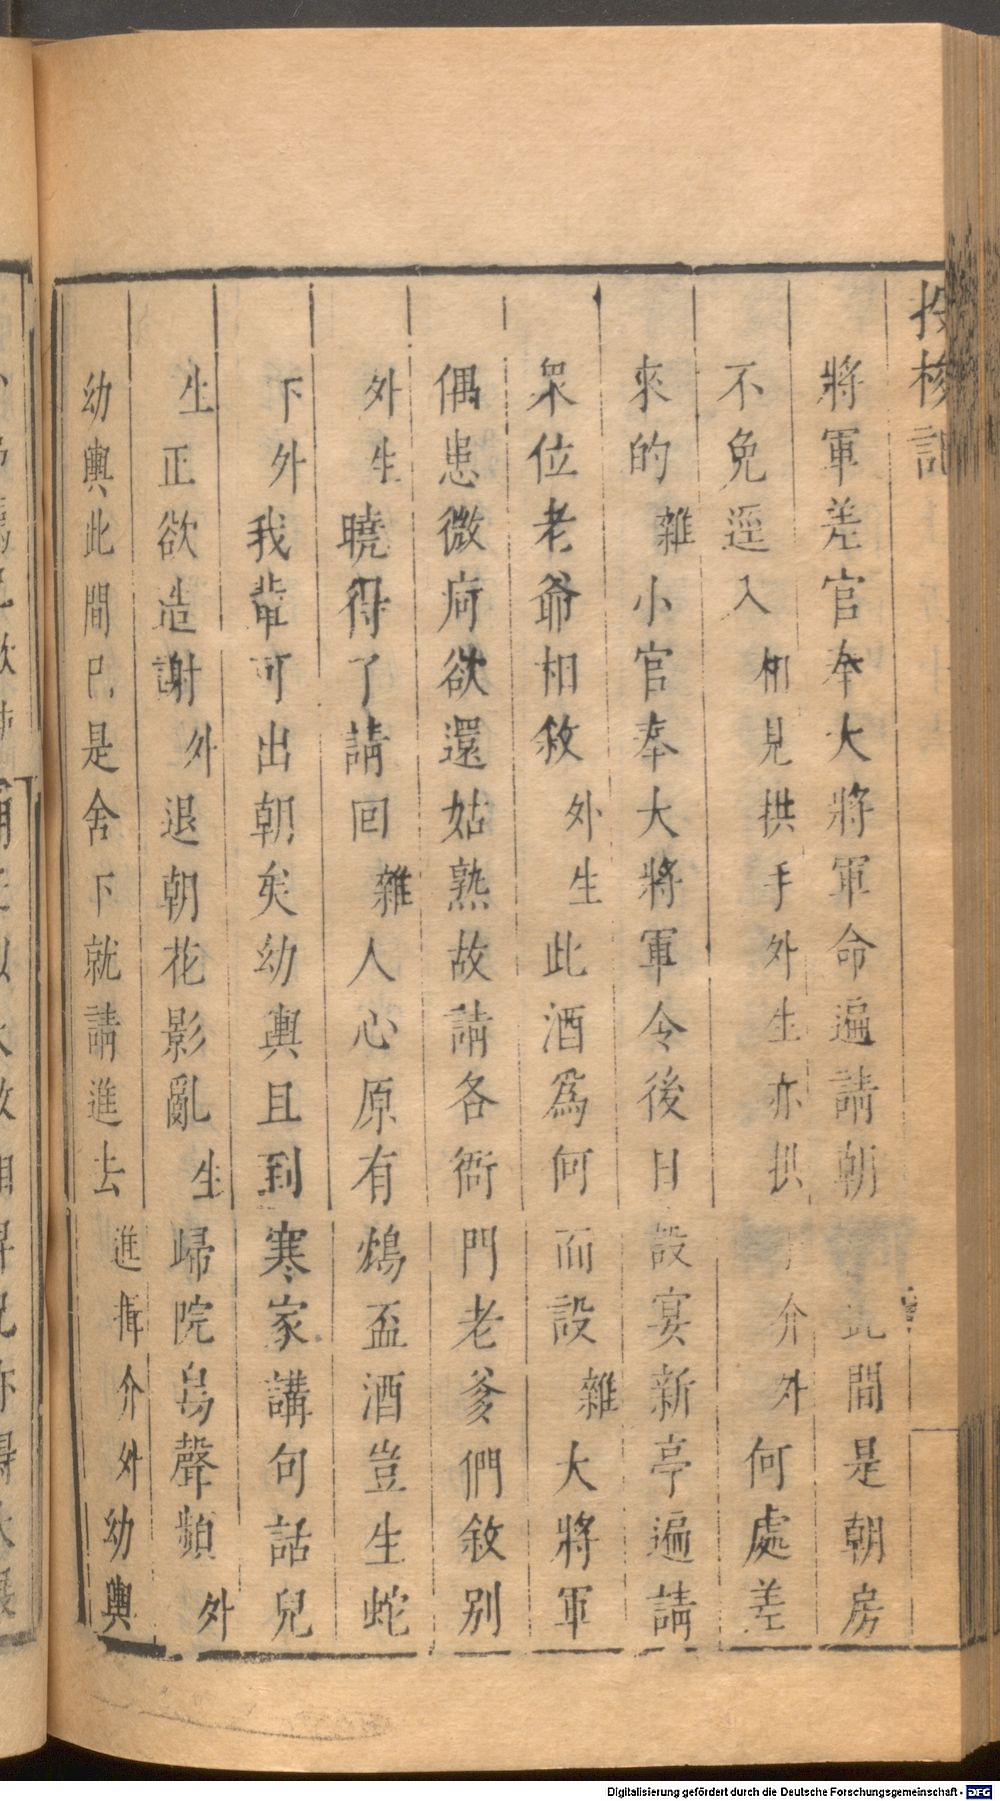 投梭記
將軍差官奉大將軍命遍請朝此間是朝房
不免逕入相見拱手外生亦拱手介外何處差
來的雜小官奉大將軍令後日設宴新亭遍請
衆位老爺相敘外生此酒爲何而設雜大將軍
偶患微疴欲還姑熟故請各衙門老爹們敘别
外生曉得了請回雜人心原有鴆盃酒豈生蛇
下外我輩可出朝矣幼輿且到寒家講句話兒
生正欲造謝外退朝花影亂生歸院鳥聲頻外
幼輿此間已是舍下就請進去進揖介外幼輿
Digitalisierung gefördert durch die Deutsche Forschungsgemeinschaft - DFG